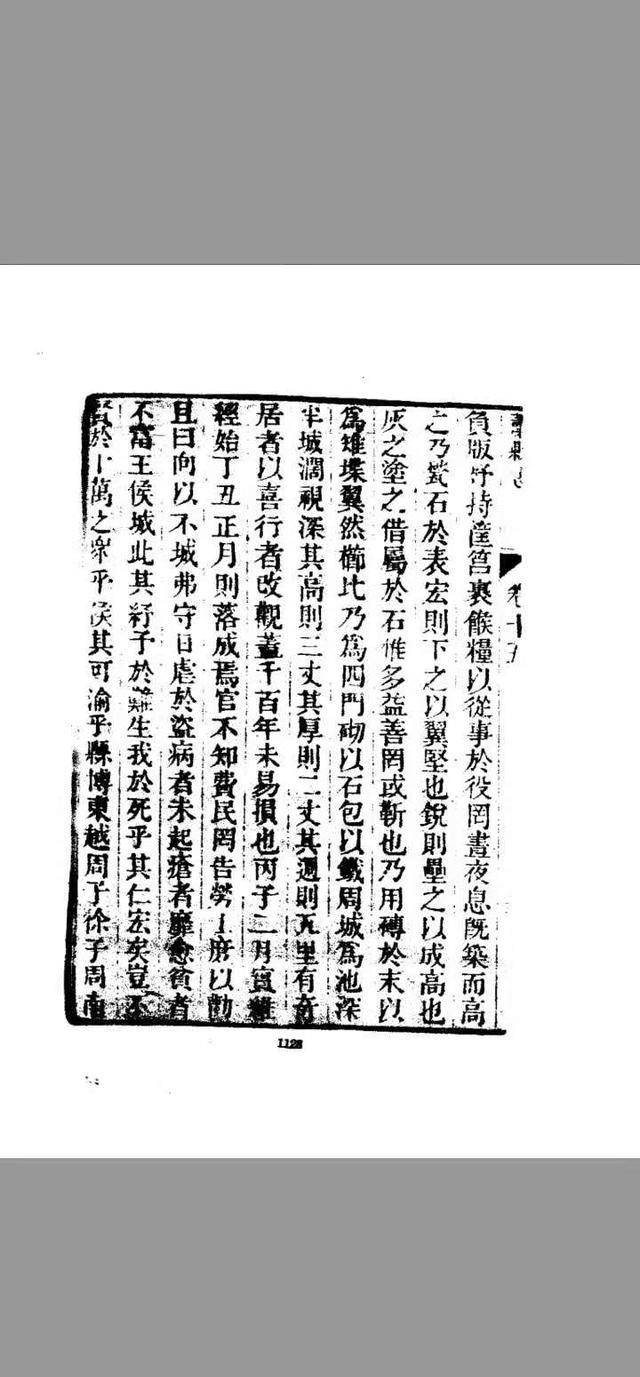 縣志
卷十五
負版杵持篚筥裹餱糧以從事於役罔晝夜息旣築而高
之乃甃石於表宏則下之以翼堅也銳則壘之以成高也
灰之塗之借屬於石惟多益善罔或靳也乃用磚於末以
爲雉堞翼然櫛比乃爲四門砌以石包以鐵周城爲池深
半城濶視深其高則三丈其厚則二丈其週則五里有奇
居者以喜行者改觀蓋千百年未易損也丙子二月實維
經始丁丑正月則落成焉官不知費民罔告勞上度以勸
且曰向以不城弗守日虐於盜病者未起瘡者靡愈貧者
不富王侯城此其紓予於難生我於死乎其仁宏矣豈不
賢於十萬之衆乎侯其可渝乎縣博東越周子徐子周南
1128